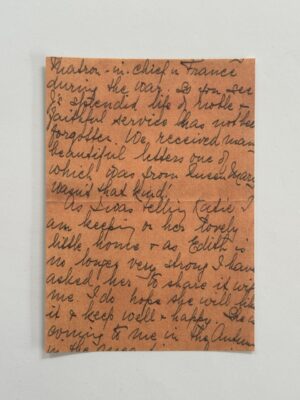 Matron-in-chief in France
during the war. So you see
splendid life of noble &
faithful service has not been
forgotten. We received many
beautiful letters one of
which was from Queen Mary
wasn't that kind!
As I was telling Katie I
am keeping on her lovely
little home & as Edith is
no longer very strong I have
asked her to share it with
me. I do hope she will like
it & keep well & happy. She is
coming to me in the Autumn
in the